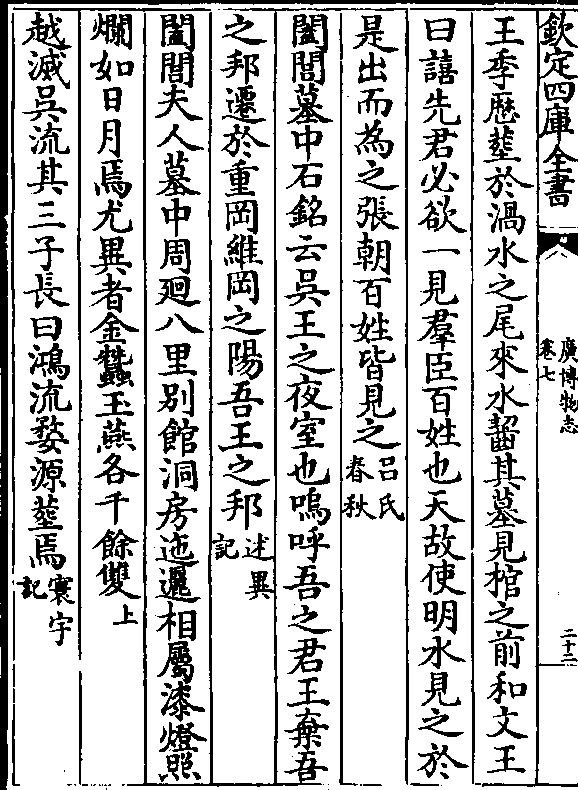 欽定四庫全書
廣博物志
卷七
二十二
王季歷塟於渦水之尾欒水齧其墓見棺之前和文王
曰譆先君必欲一見羣臣百姓也天故使明水見之於
是出而為之張朝百姓皆見之吕氏春秋
闔閭墓中石銘云吳王之夜室也嗚呼吾之君王棄吾
之邦遷於重岡維岡之陽吾王之邦述異記
闔閭夫人墓中周廻八里别館洞房迤邐相屬漆燈照
爛如日月焉尤異者金蠶玉燕各千餘雙上
越滅吳流其三子長曰鴻流婺源塟焉寰宇記